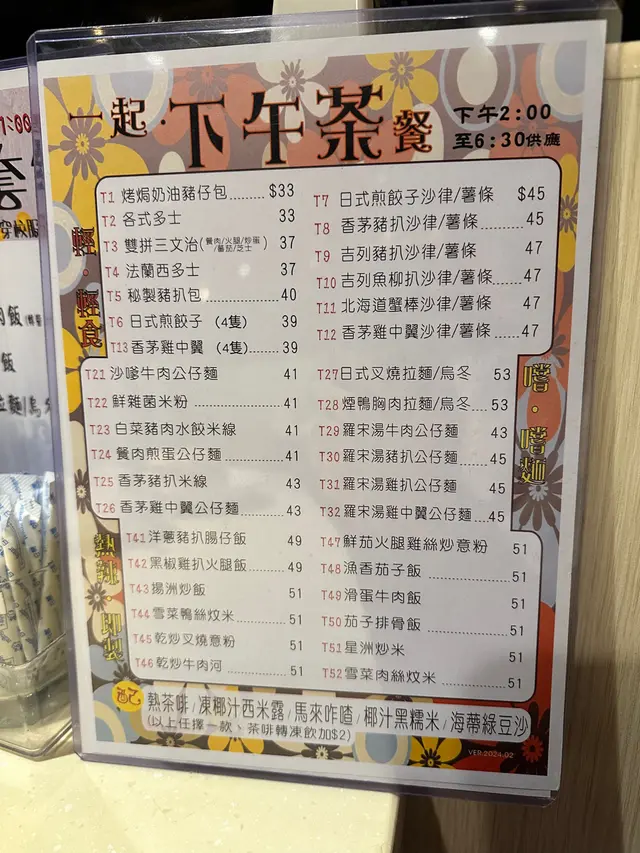 一起·下午茶餐
下午2:00
至6:30供應
輕·輕食
T1 烤焗奶油豬仔包........$33
T2 各式多士 33
T3 雙拼三文治(餐肉/火腿/炒蛋/蕃茄/芝士) 37
T4 法蘭西多士 37
T5 秘製豬扒包............40
T6 日式煎餃子 (4隻) 39
T13 香茅雞中翼 (4隻)........39
T7 日式煎餃子沙律/薯條 $45
T8 香茅豬扒沙律/薯條......45
T9 吉列豬扒沙律/薯條 47
T10 吉列魚柳扒沙律/薯條......47
T11 北海道蟹棒沙律/薯條 47
T12 香茅雞中翼沙律/薯條......47
嚐·嚐麵
T21 沙嗲牛肉公仔麵 41
T22 鮮雜菌米粉................41
T23 白菜豬肉水餃米線 41
T24 餐肉煎蛋公仔麵..........41
T25 香茅豬扒米線 43
T26 香茅雞中翼公仔麵......43
T27 日式叉燒拉麵/烏冬 53
T28 煙鴨胸肉拉麵/烏冬....53
T29 羅宋湯牛肉公仔麵 43
T30 羅宋湯豬扒公仔麵......45
T31 羅宋湯雞扒公仔麵 45
T32 羅宋湯雞中翼公仔麵....45
熱辣·即製
T41 洋蔥豬扒腸仔飯 49
T42 黑椒雞扒火腿飯........49
T43 揚洲炒飯 51
T44 雪菜鴨絲炆米............51
T45 乾炒叉燒意粉 51
T46 乾炒牛肉河................51
T47 鮮茄火腿雞絲炒意粉 51
T48 漁香茄子飯................51
T49 滑蛋牛肉飯 51
T50 茄子排骨飯................51
T51 星洲炒米 51
T52 雪菜肉絲炆米............51
配 熱茶啡/凍椰汁西米露/馬來咋喳/椰汁黑糯米/海蒂綠豆沙
(以上任擇一款、茶啡轉凍飲加$2)
VER:2024.02